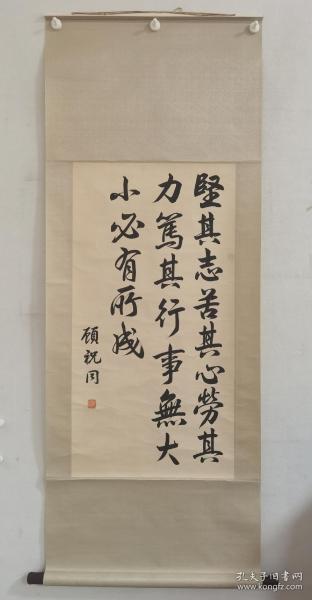 堅其志苦其心勞其
力篤其行事無大
小必有所成
顧祝同
孔夫子旧书网
www.kongfz.com